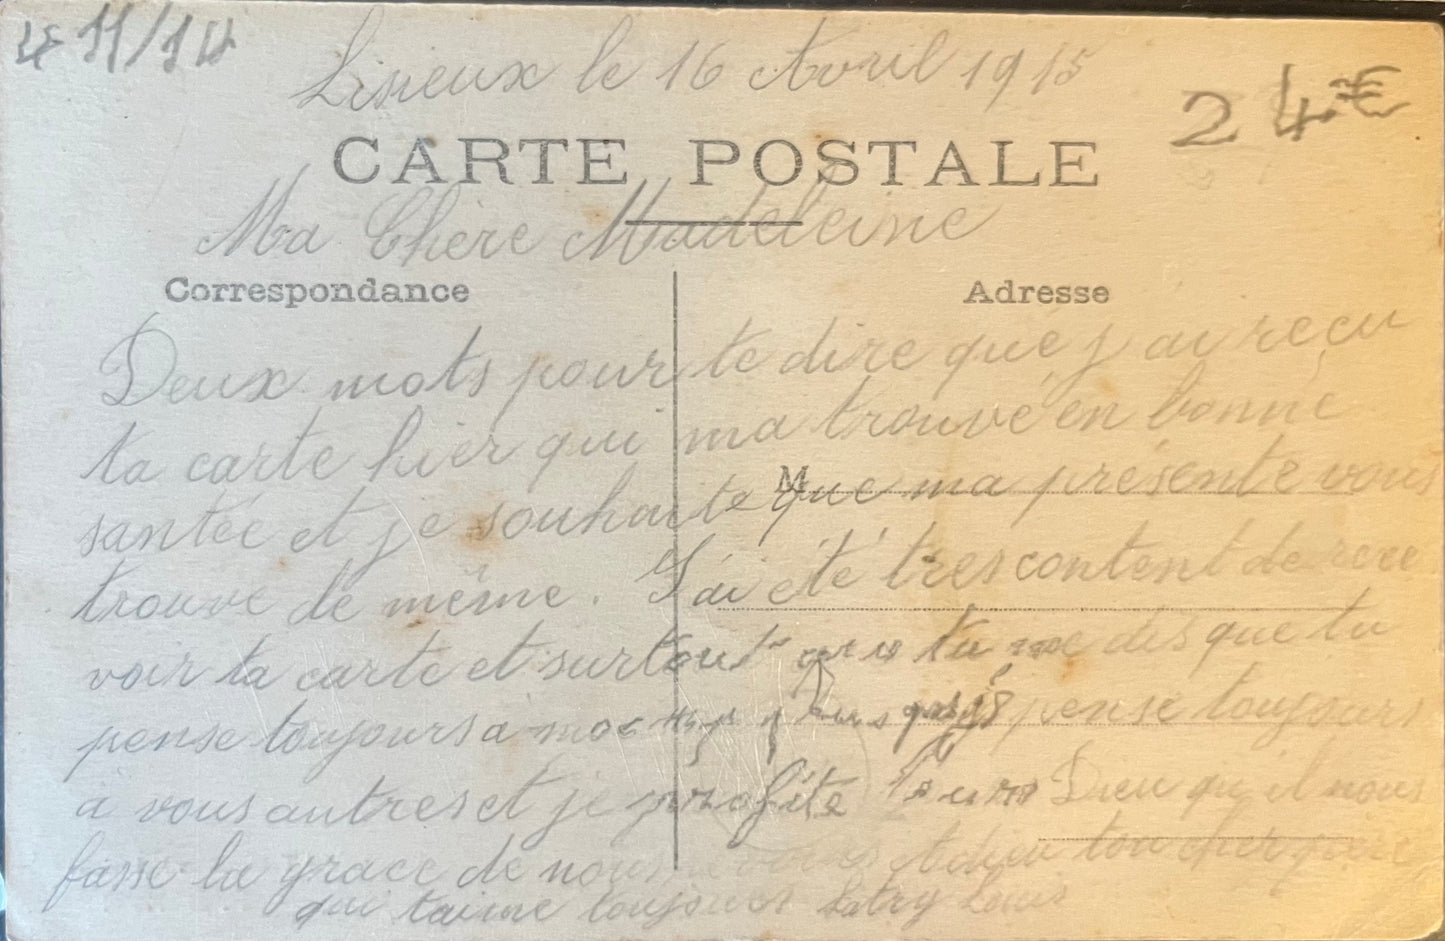 4 11/14
Lisieux le 16 Avril 1915
2 4.€
CARTE POSTALE
Ma Chère Madeleine
Correspondance
Adresse
Deux mots pour te dire que j ai recu
ta carte hier qui ma trouvé en bonne
M
santée et je souhaite que ma présente vous
trouve de même. J'ai été tres content de rece
voir ta carte et surtout tu me dis que tu
pense toujours a moi pense toujours
a vous autres et je Dieu qu il nous
fasse la grace de nous Adieu ton cher
qui taime toujours Louis